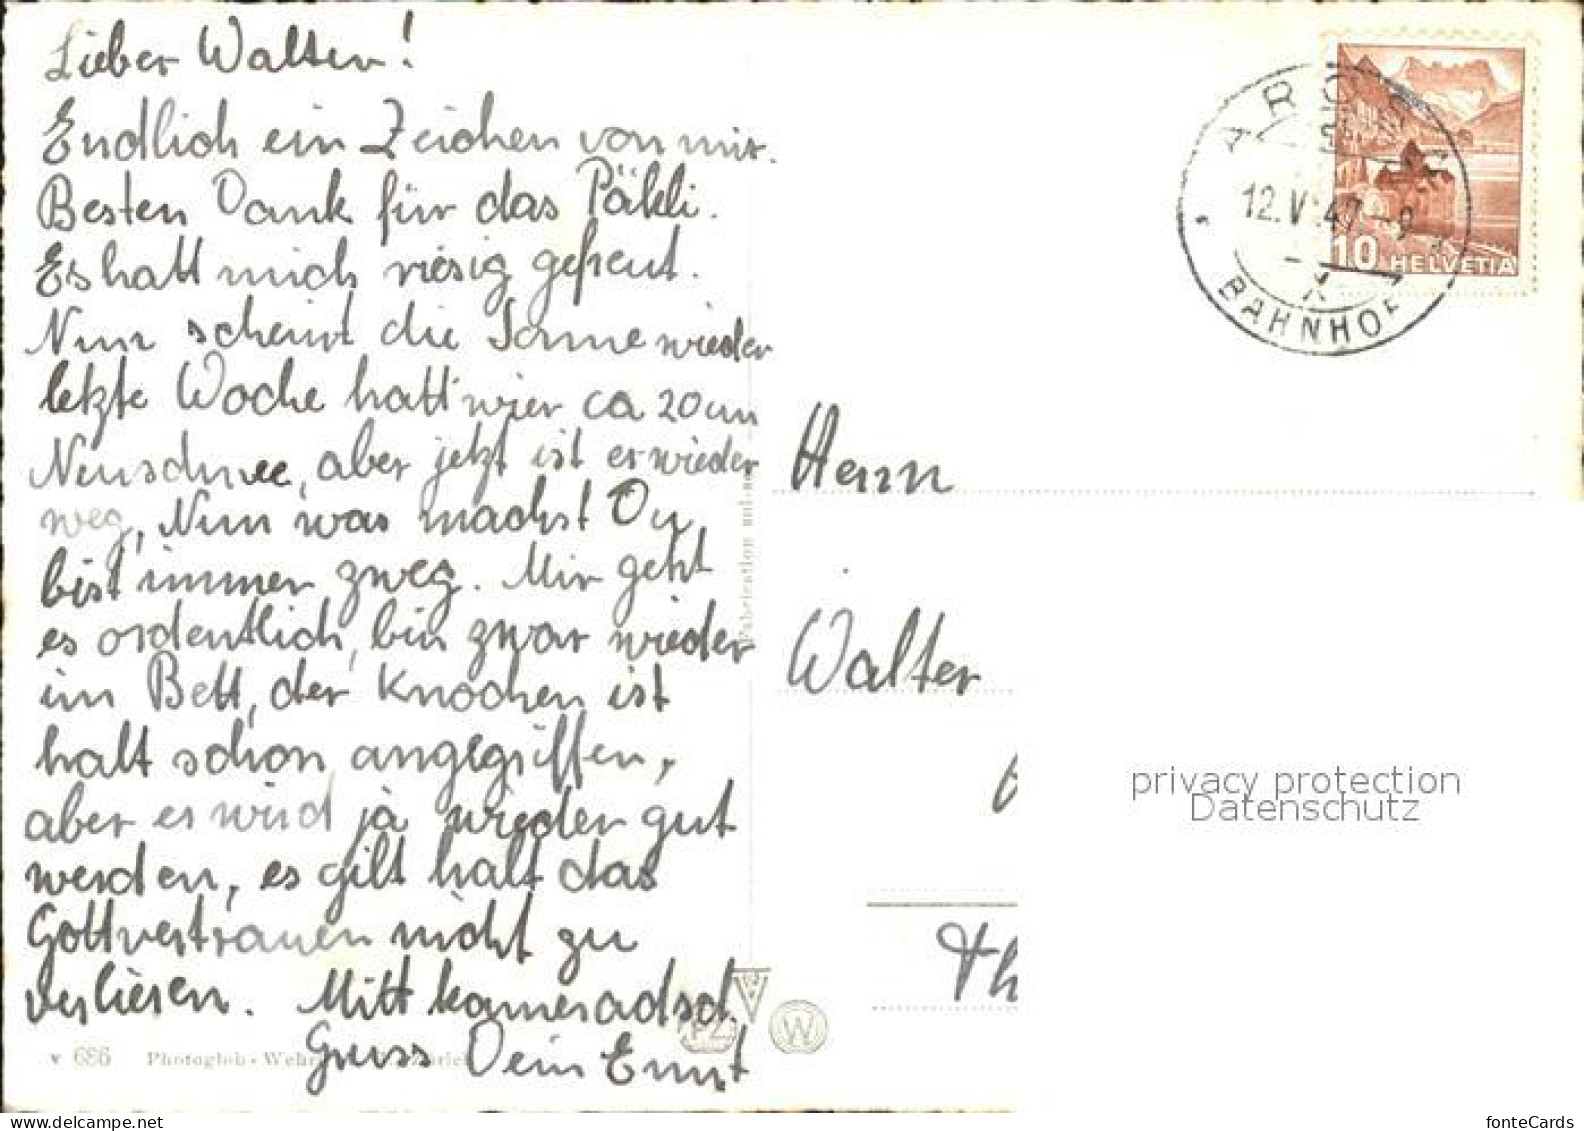 Lieber Walter!
Endlich ein Zeichen von mir.
Besten Dank für das Päkli.
Es hatt mich riesig gefreut.
Nun scheint die Sonne wieder
letzte Woche hatt wier ca 20 cm
Neuschnee, aber jetzt ist er wieder
weg, Nun was machst Du,
bist immer zweg. Mir geht
es ordentlich, bin zwar wieder
im Bett, der Knochen ist
halt schon angegriffen,
aber es wird ja wieder gut
werden, es gilt halt das
Gottvertrauen nicht zu
verlieren. Mitt kameradsch.
Gruss Dein Ernst
v 686 Photoglob-Wehrli
Fabrication suisse
AROSA
12.V.47-9
BAHNHOF
10 HELVETIA
Herrn
Walter
Th
W
privacy protection
Datenschutz
fonteCards